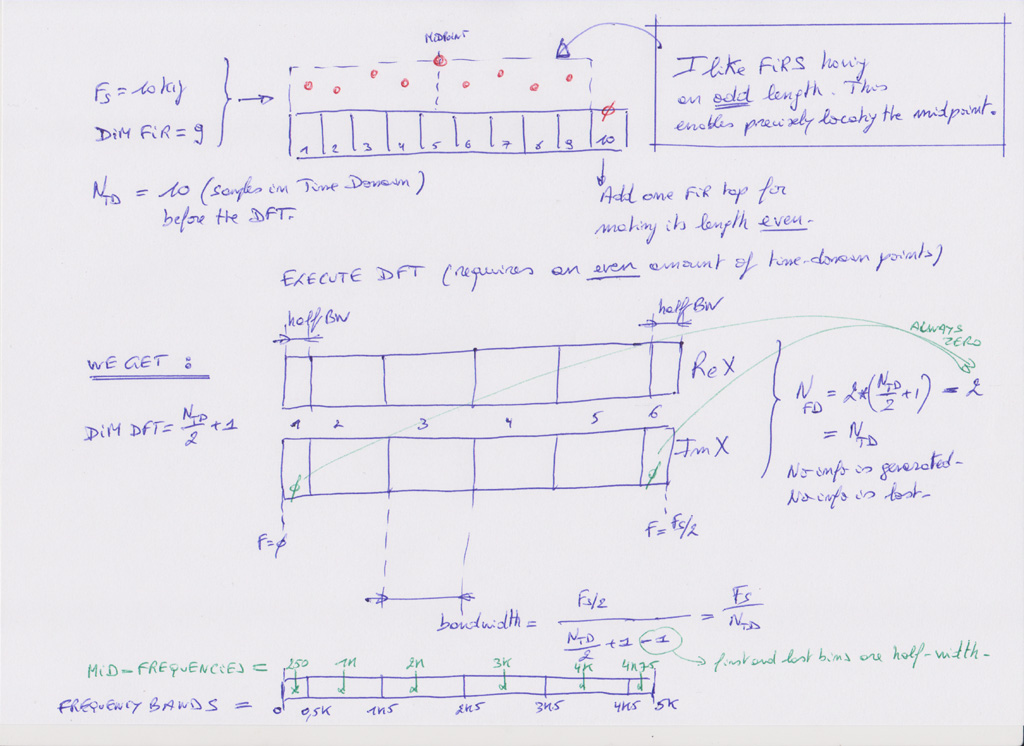 MIDPOINT
Fs = 10 kHz
DIM FIR = 9
1 2 3 4 5 6 7 8 9 10
I like FIRS having
an odd length. This
enables precisely locating the midpoint.
N_TD = 10 (samples in Time Domain)
before the DFT.
Add one FIR tap for
making its length even.
EXECUTE DFT (requires an even amount of time-domain points)
half BW
half BW
ALWAYS
ZERO
WE GET :
ReX
DIM DFT = N_TD/2 + 1
1 2 3 4 5 6
ImX
φ
φ
N_FD = 2*(N_TD/2 + 1) - 2
= N_TD
No info is generated.
No info is lost.
F=φ
F = Fs/2
bandwidth = (Fs/2)/(N_TD/2 + 1 - 1) = Fs/N_TD
first and last bins are half-width.
MID-FREQUENCIES = 250 1K 2K 3K 4K 4K75
FREQUENCY BANDS = 0 0,5K 1K5 2K5 3K5 4K5 5K